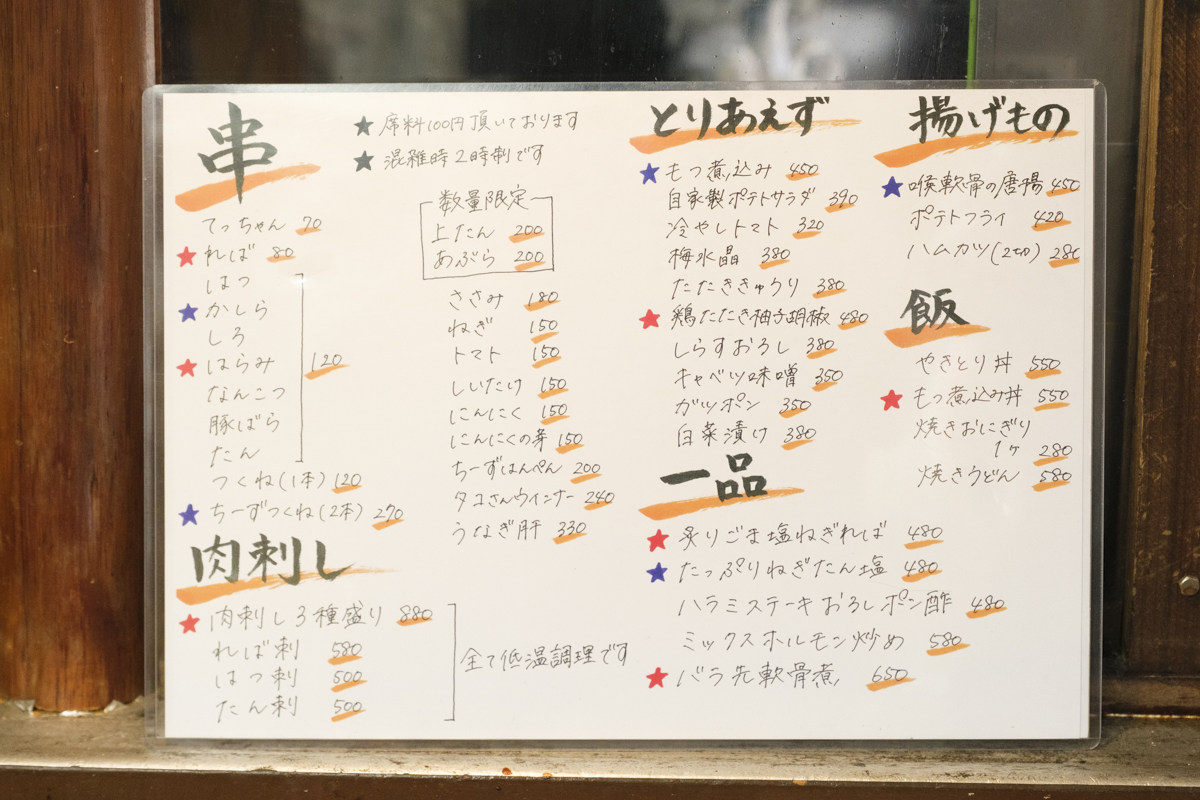 串
★席料100円頂いております
★混雑時2時制です
てっちゃん 70
★ればー 80
はつ
★かしら
しろ
★はらみ
なんこつ
豚ばら
たん
120
つくね(1本) 120
★ちーずつくね(2本) 270
数量限定
上たん 200
あぶら 200
ささみ 180
ねぎ 150
トマト 150
しいたけ 150
にんにく 150
にんにくの芽 150
ちーずはんぺん 200
タコさんウインナー 240
うなぎ肝 330
肉刺し
★肉刺し3種盛り 880
ればー刺 580
はつ刺 500
たん刺 500
全て低温調理です
とりあえず
★もつ煮込み 450
自家製ポテトサラダ 390
冷やしトマト 320
梅水晶 380
たたききゅうり 380
★鶏たたき柚子胡椒 480
しらすおろし 380
キャベツ味噌 350
ガツポン 350
白菜漬け 380
一品
★炙りごま塩ねぎれば 480
★たっぷりねぎたん塩 480
ハラミステーキおろしポン酢 480
ミックスホルモン炒め 580
★バラ先軟骨煮 650
揚げもの
★喉軟骨の唐揚 450
ポテトフライ 420
ハムカツ(2切) 280
飯
やきとり丼 550
★もつ煮込み丼 550
焼きおにぎり
1ヶ 280
焼きうどん 580